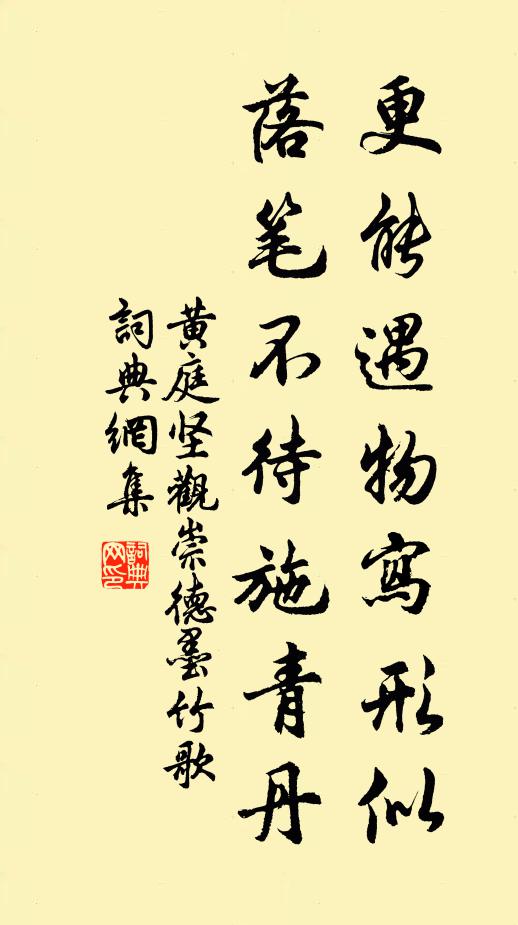 更能遇物寫形似
落笔不待施青丹
黄庭坚觀崇德墨竹歌
詞典網集
詞典網印